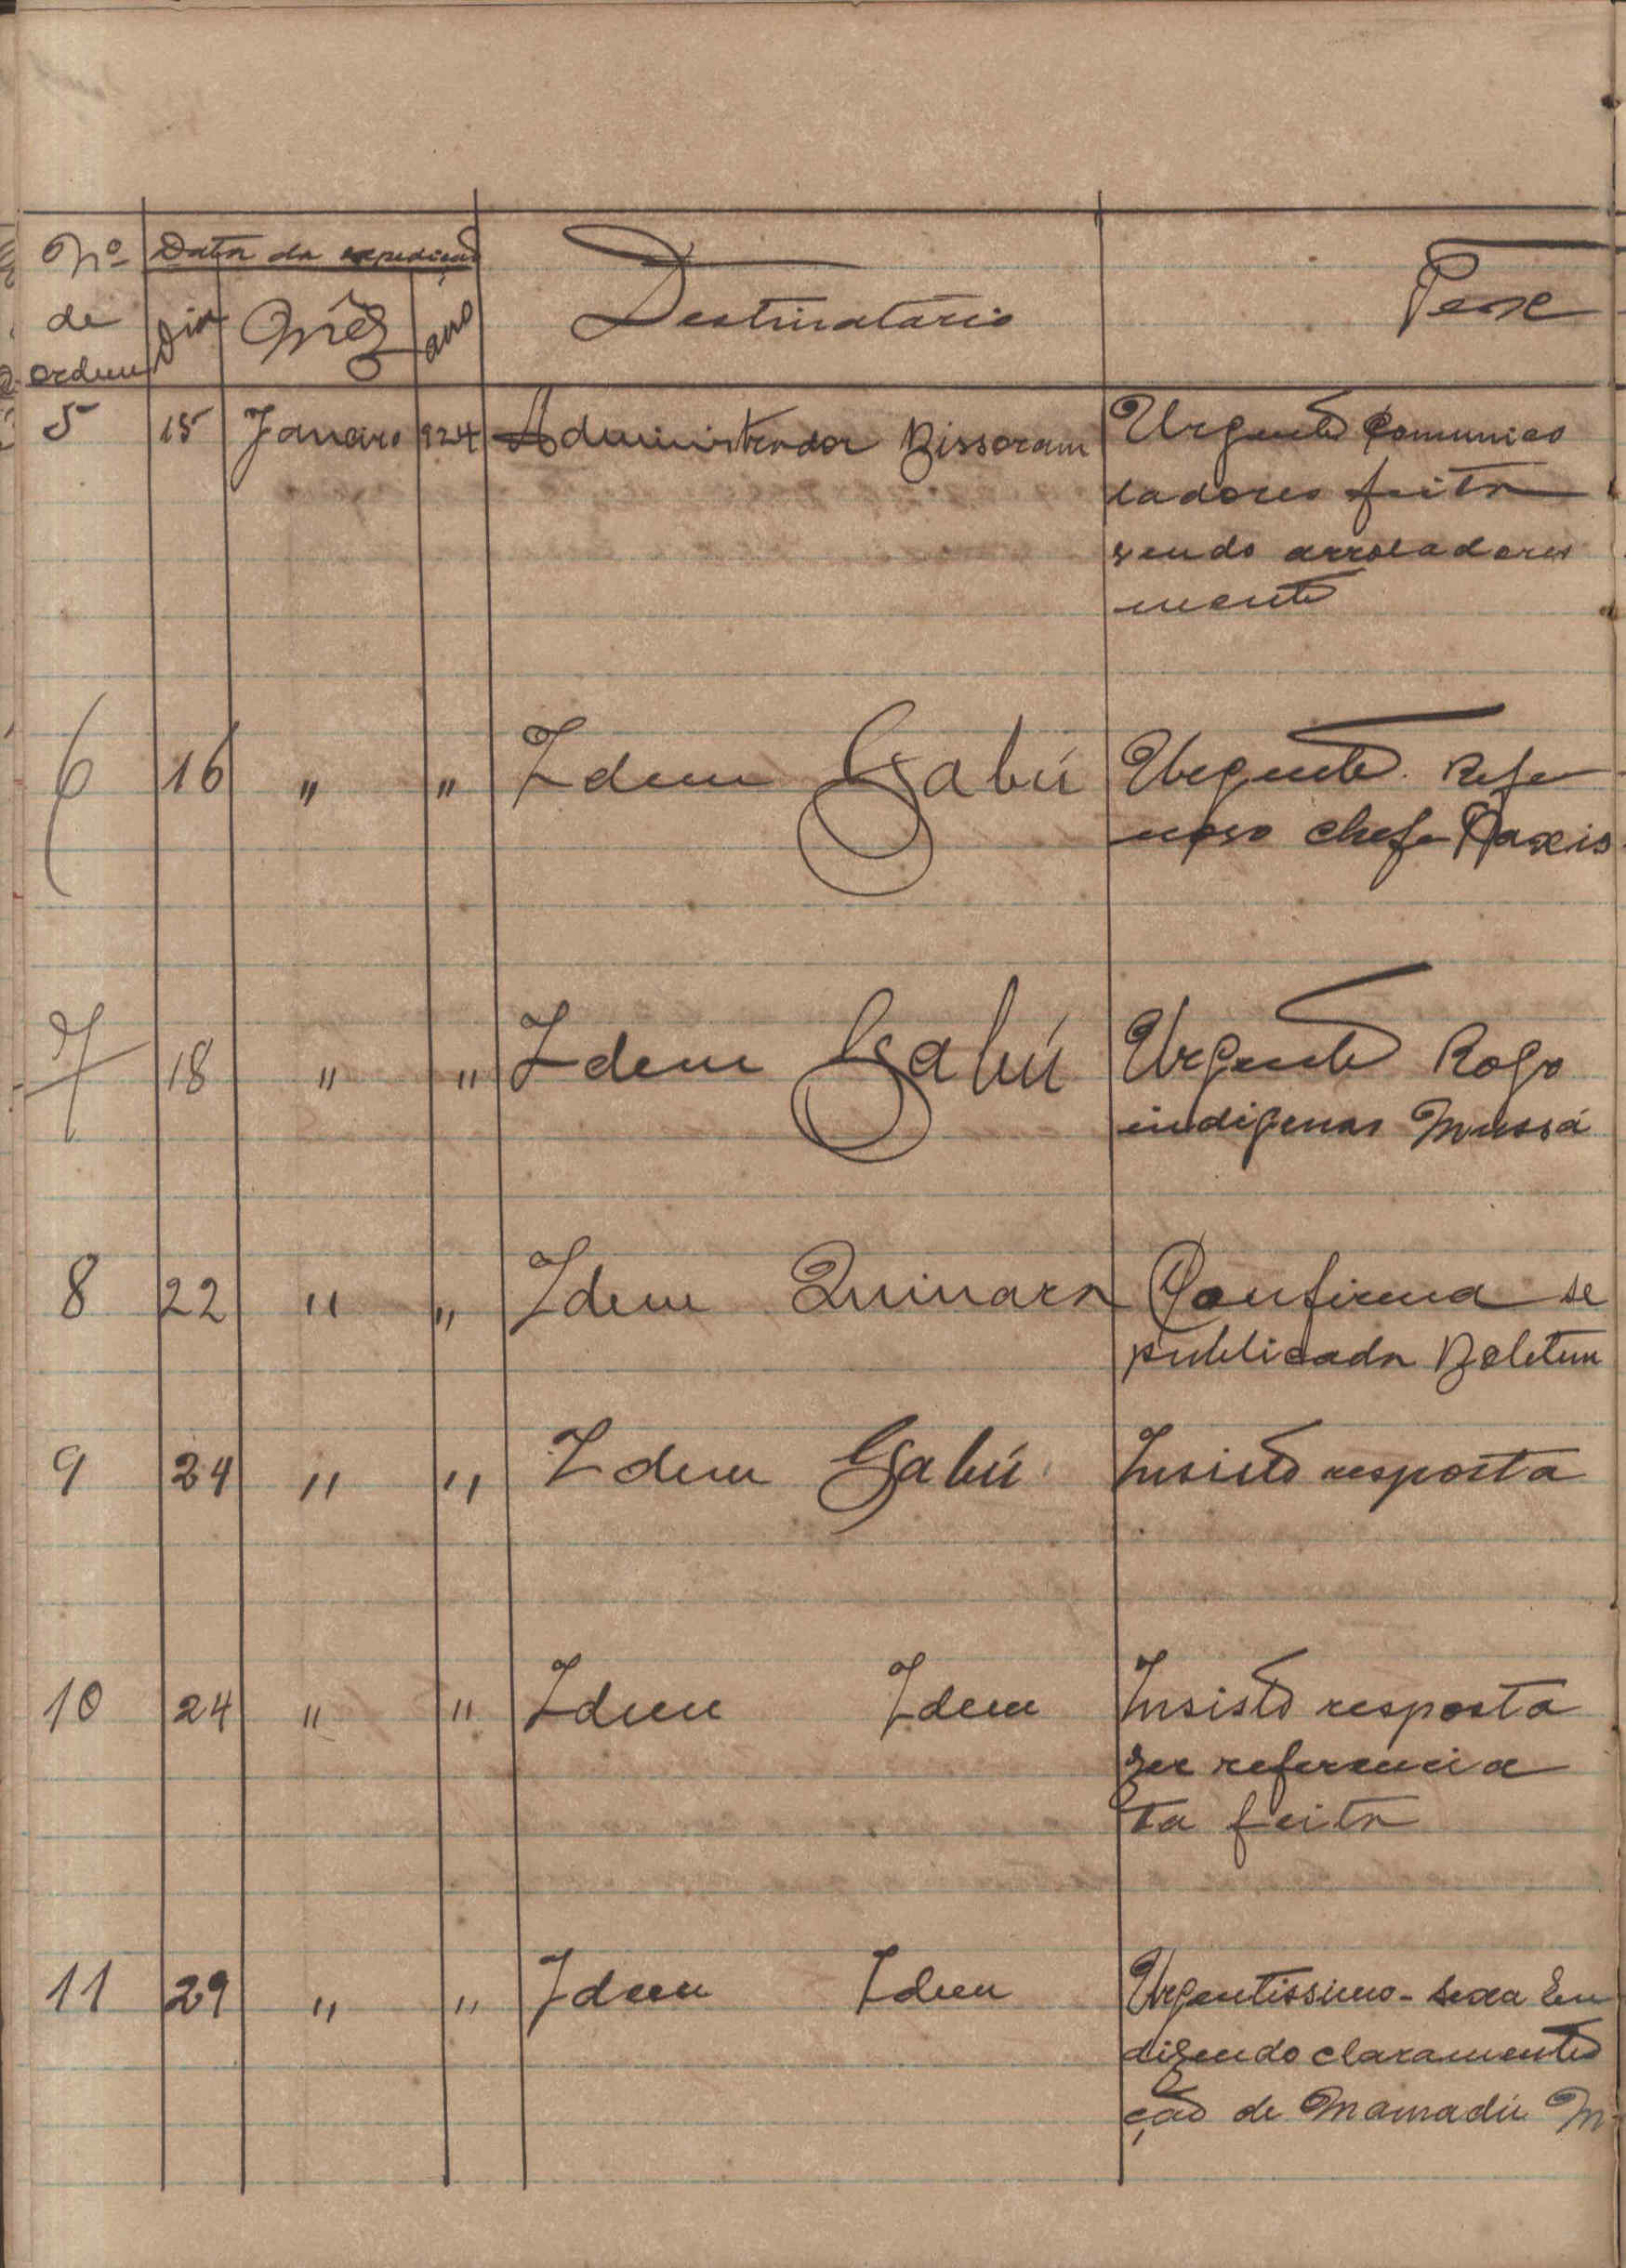 Nº de ordem Data da expedição Destinatário Texe
Dia Mês ano
5 15 Janeiro 924 Administrador Bissoram Urgente Comunico
ladores feita
sendo arroladores
mente
6 16 " " Idem Gabú Urgente. Refe
chefe
7 18 " " Idem Gabú Urgente Rogo
indigenas Mussá
8 22 " " Idem Quinara Confirma se
publicada Boletim
9 24 " " Idem Gabú Insisto resposta
10 24 " " Idem Idem Insisto resposta
zer referencia
ta feita
11 29 " " Idem Idem Urgentissimo - Sexa Em
dizendo claramente
ção de Mamadú M